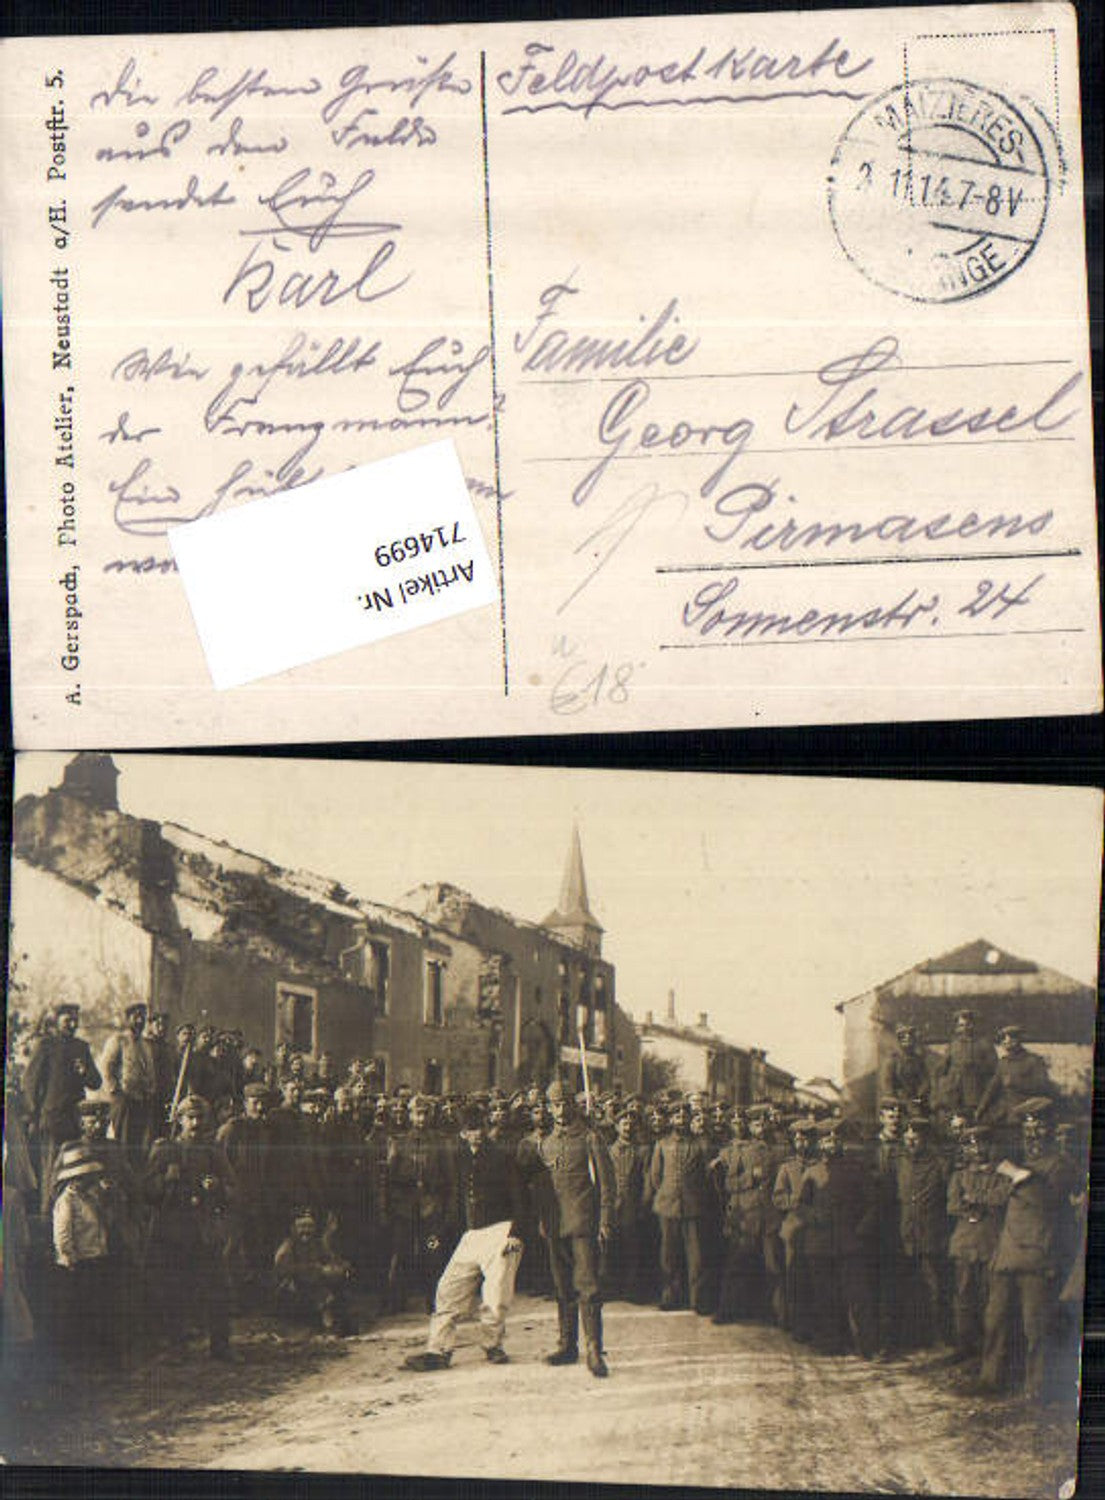 A. Gerspach, Photo Atelier, Neustadt a/H. Poststr. 5.
Die besten Grüße
aus dem Felde
sendet Euch
Karl
Wie gefällt Euch
der Franzmann?
Ein
Artikel Nr.
714699
Feldpostkarte
MAIZIÈRES-
11.14.7-8V
Familie
Georg Strassel
Pirmasens
Sonnenstr. 24
€18